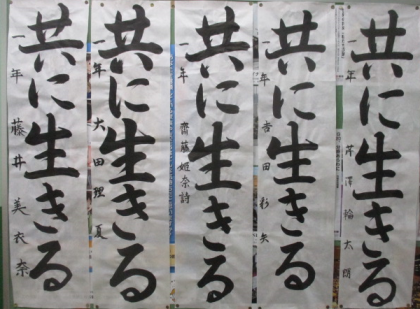 共に生きる
一年 芹澤倫太朗
共に生きる
一年 吉田彩矢
共に生きる
一年 齋藤姫奈詩
共に生きる
一年 太田理夏
共に生きる
一年 藤井美衣奈